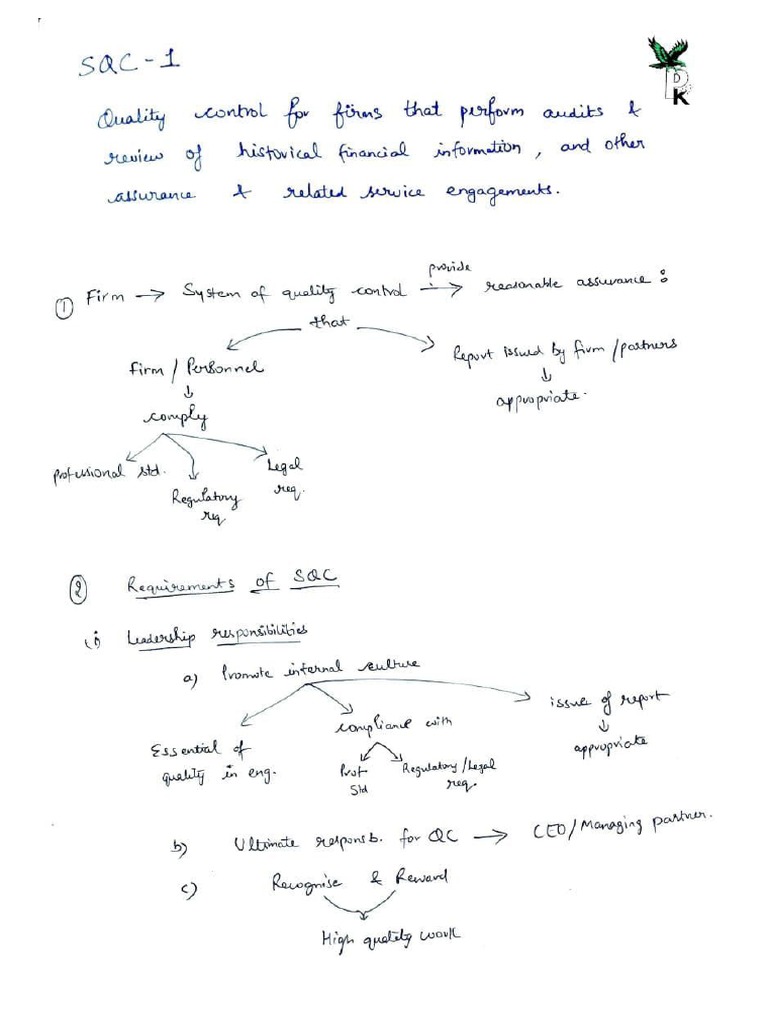 SQC-1
Quality control for firms that perform audits &
review of historical financial information, and other
assurance & related service engagements.
PK
① Firm → System of quality control → provide reasonable assurance:
that
Firm / Personnel
Report issued by firm/partners
↓
↓
comply
appropriate.
Professional std.
Regulatory
req.
Legal
req.
② Requirements of SQC
(i) Leadership responsibilities
a) Promote internal culture
Essential of
quality in eng.
compliance with
Prof
Std
Regulatory/Legal
req.
issue of report
↓
appropriate
b) Ultimate responsb. for QC → CEO/Managing partner.
c) Recognise & Reward
High quality work